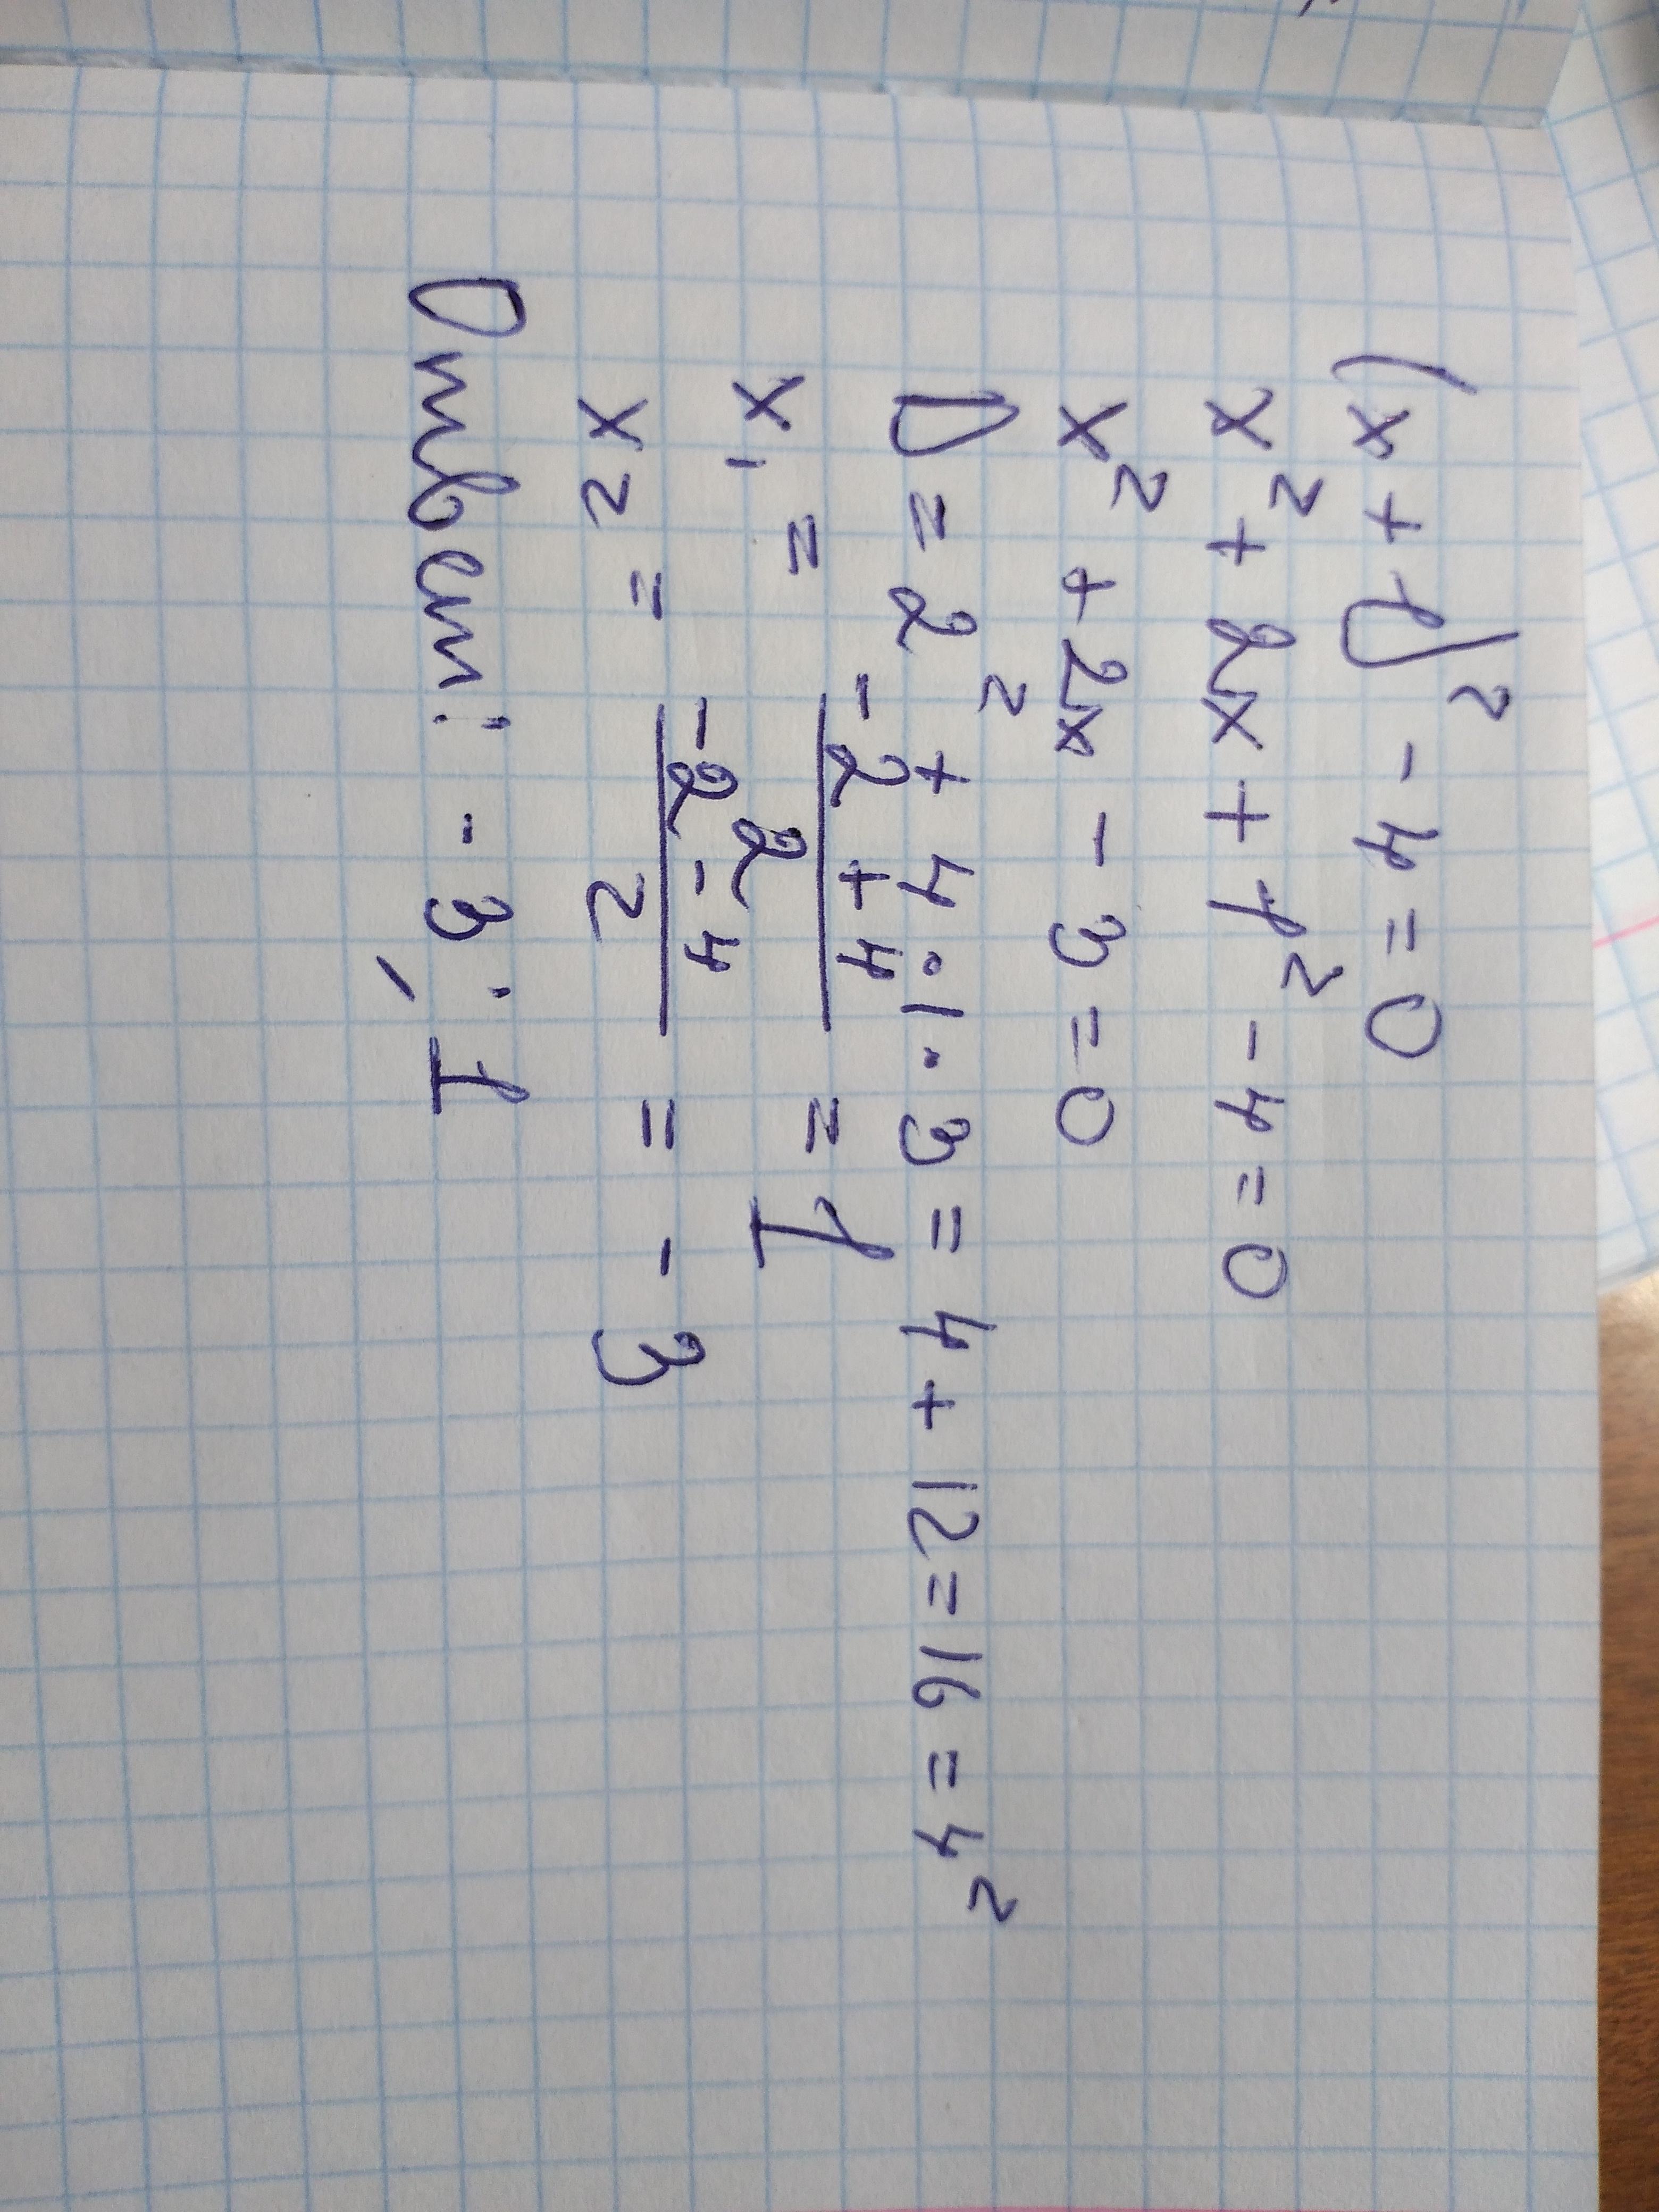 (x + 1)² - 4 = 0
x² + 2x + 1² - 4 = 0
x² + 2x - 3 = 0
D = 2² + 4 · 1 · 3 = 4 + 12 = 16 = 4²
x₁ = (-2 + 4)/2 = 1
x₂ = (-2 - 4)/2 = -3
Ответ: -3; 1